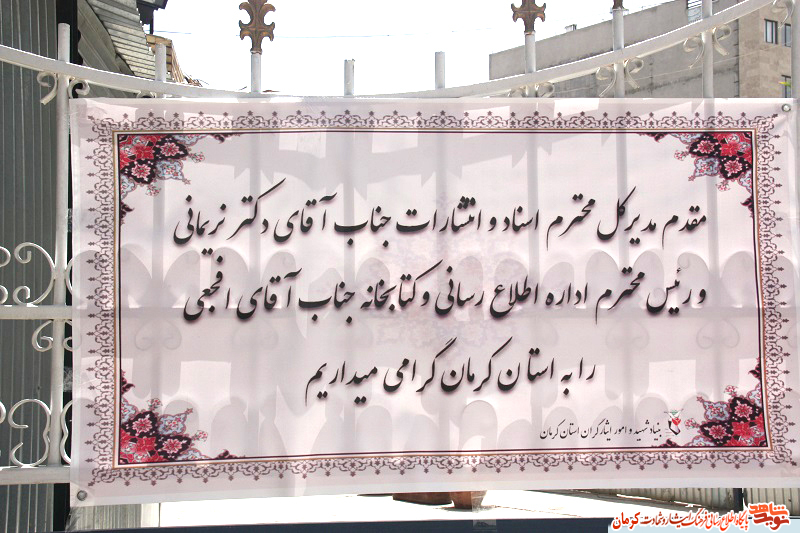 مقدم مدیرکل محترم اسناد و انتشارات جناب آقای دکتر نریمانی
و رئیس محترم اداره اطلاع رسانی و کتابخانه جناب آقای افجعی
را به استان کرمان گرامی میداریم
بنیاد شهید و امور ایثارگران استان کرمان
نوید شاهد پایگاه اطلاع رسانی فرهنگ ایثار و شهادت کرمان